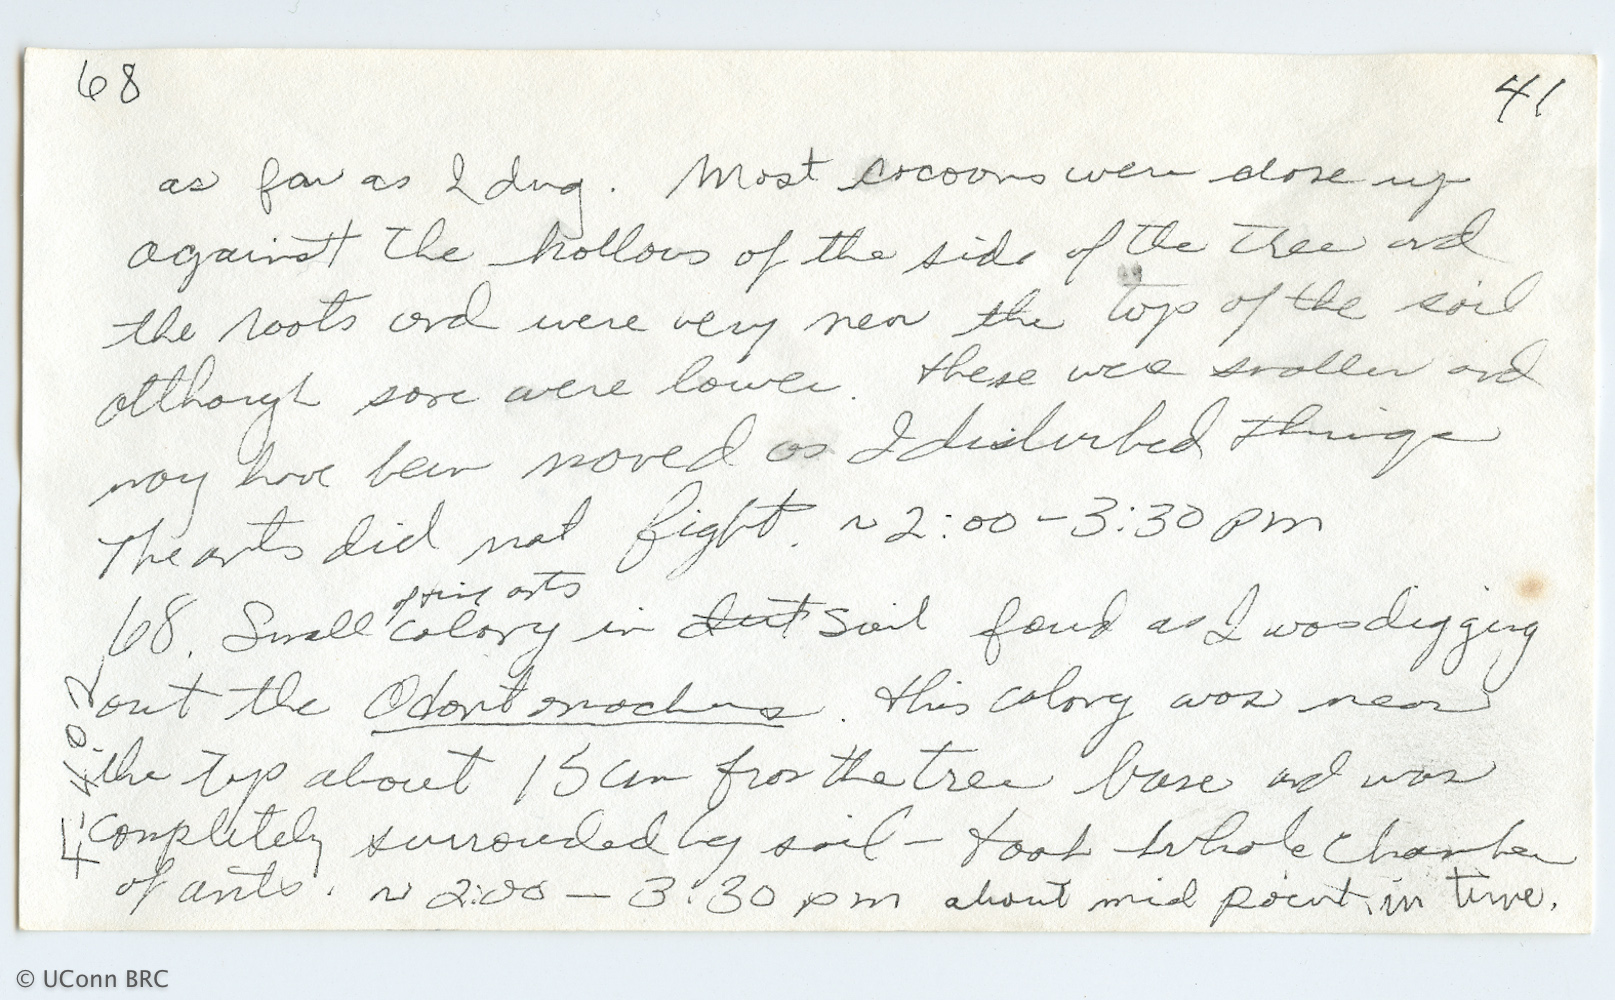 68
41
as far as I dug. Most cocoons were close up
against the hollows of the side of the tree and
the roots and were very near the top of the soil
although some were lower. these were smaller and
may have been moved as I disturbed things
The ants did not fight. ~ 2:00 - 3:30 pm
ants
68. Small colony in dirt soil found as I was digging
out the Odontomachus. this colony was near
the top about 15 cm from the tree base and was
completely surrounded by soil - took whole chamber
of ants. ~ 2:00 - 3:30 pm about mid point in time.
© UConn BRC